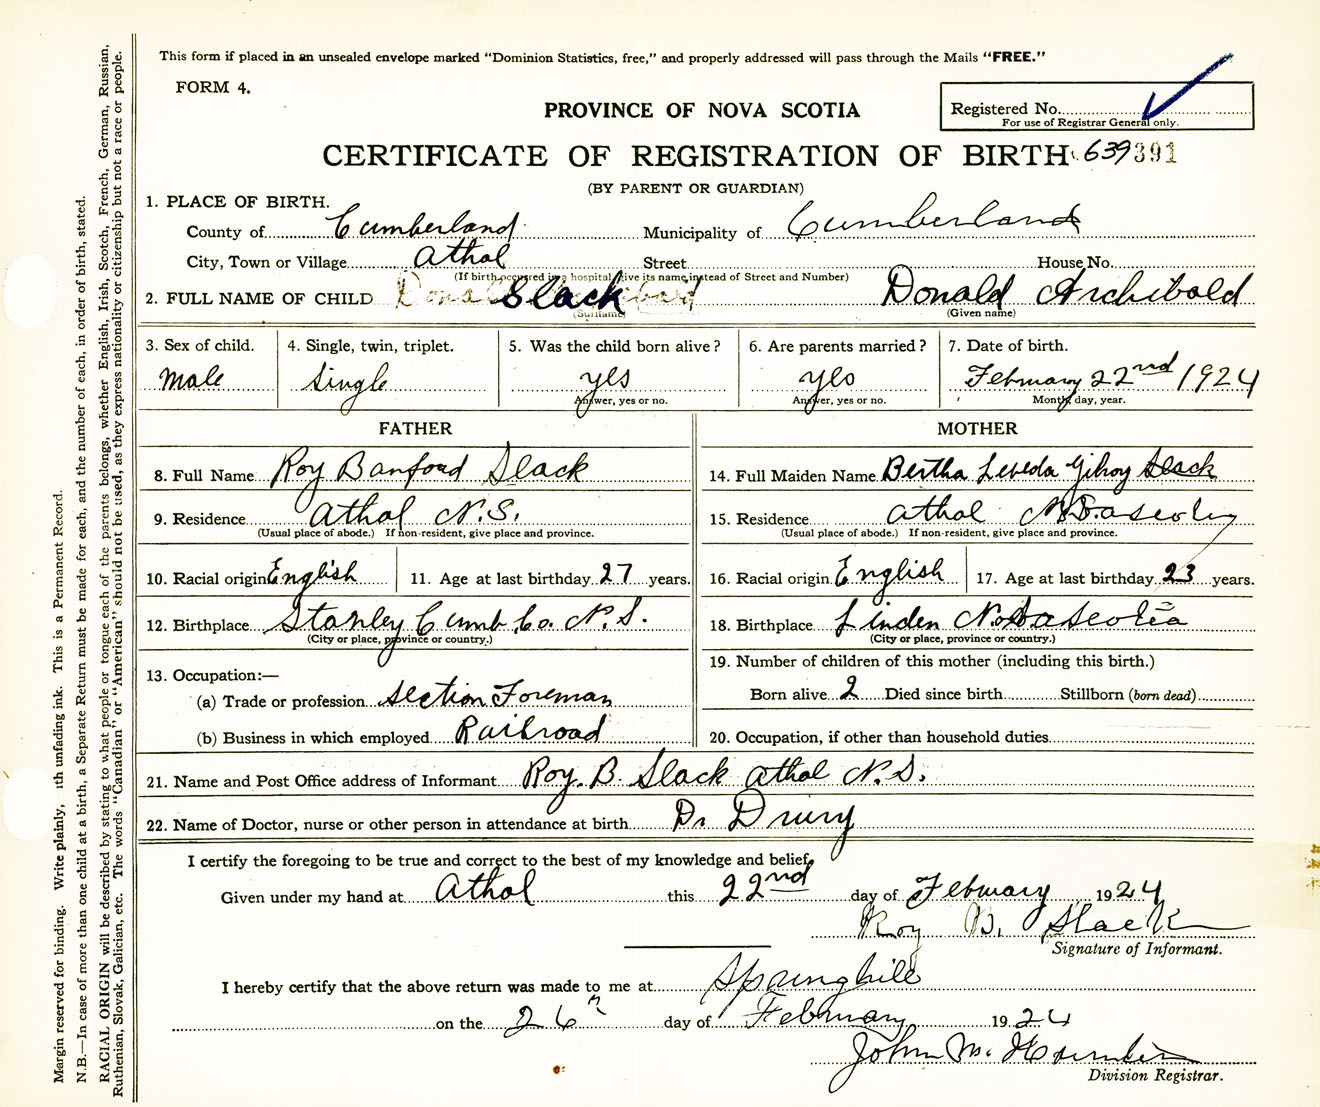 This form if placed in an unsealed envelope marked "Dominion Statistics, free," and properly addressed will pass through the Mails "FREE."
FORM 4.
PROVINCE OF NOVA SCOTIA
Registered No.
For use of Registrar General only.
CERTIFICATE OF REGISTRATION OF BIRTH 639391
(BY PARENT OR GUARDIAN)
1. PLACE OF BIRTH.
County of Cumberland Municipality of Cumberland
City, Town or Village Athol Street House No.
(If birth occurred in a hospital give its name instead of Street and Number)
2. FULL NAME OF CHILD Slack Donald Archibald
(Surname) (Given name)
3. Sex of child. 4. Single, twin, triplet. 5. Was the child born alive? 6. Are parents married? 7. Date of birth.
Male Single yes yes February 22nd 1924
Answer, yes or no. Answer, yes or no. Month, day, year.
FATHER MOTHER
8. Full Name Roy Banford Slack 14. Full Maiden Name Bertha Leveda Gilroy Slack
9. Residence Athol N.S. 15. Residence Athol
(Usual place of abode.) If non-resident, give place and province. (Usual place of abode.) If non-resident, give place and province.
10. Racial origin English 11. Age at last birthday 27 years. 16. Racial origin English 17. Age at last birthday 23 years.
12. Birthplace Stanley Cumb. Co. N.S. 18. Birthplace Linden
(City or place, province or country.) (City or place, province or country.)
13. Occupation:— 19. Number of children of this mother (including this birth.)
(a) Trade or profession Section Foreman Born alive 2 Died since birth Stillborn (born dead)
(b) Business in which employed Railroad 20. Occupation, if other than household duties
21. Name and Post Office address of Informant Roy. B. Slack Athol N.S.
22. Name of Doctor, nurse or other person in attendance at birth Dr Drury
I certify the foregoing to be true and correct to the best of my knowledge and belief,
Given under my hand at Athol this 22nd day of February 1924
Roy B. Slack
Signature of Informant.
I hereby certify that the above return was made to me at Springhill
on the 26 day of February 1924
John M.
Division Registrar.
Margin reserved for binding. Write plainly, ith unfading ink. This is a Permanent Record.
N.B.—In case of more than one child at a birth, a Separate Return must be made for each, and the number of each, in order of birth, stated.
RACIAL ORIGIN will be described by stating to what people or tongue each of the parents belongs, whether English, Irish, Scotch, French, German, Russian,
Ruthenian, Slovak, Galician, etc. The words "Canadian" or "American" should not be used, as they express nationality or citizenship but not a race or people.